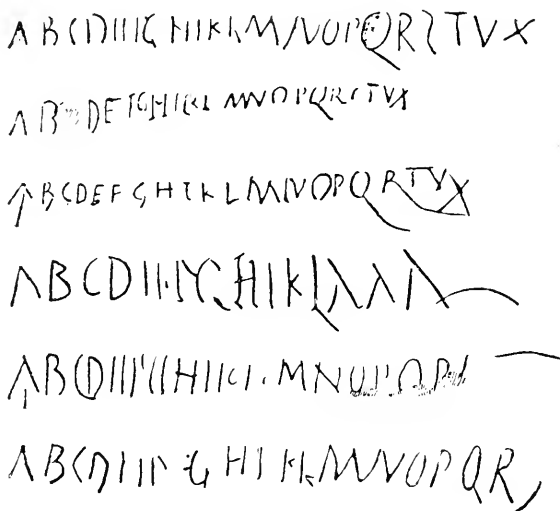 A B C D II I' G H I K L M N O P Q R S T V X
A B C D E F G H I K L M N O P Q R S T V X
A B C D E F G H I K L M N O P Q R T V X
A B C D II I' G H I K L
A B C D II I' G H I K L M N O P Q R
A B C D II I' G H I K L M N O P Q R